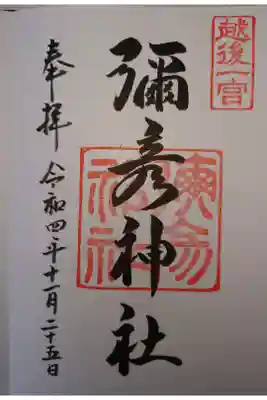 越後一宮
彌彦神社
奉拝 令和四年十一月二十五日